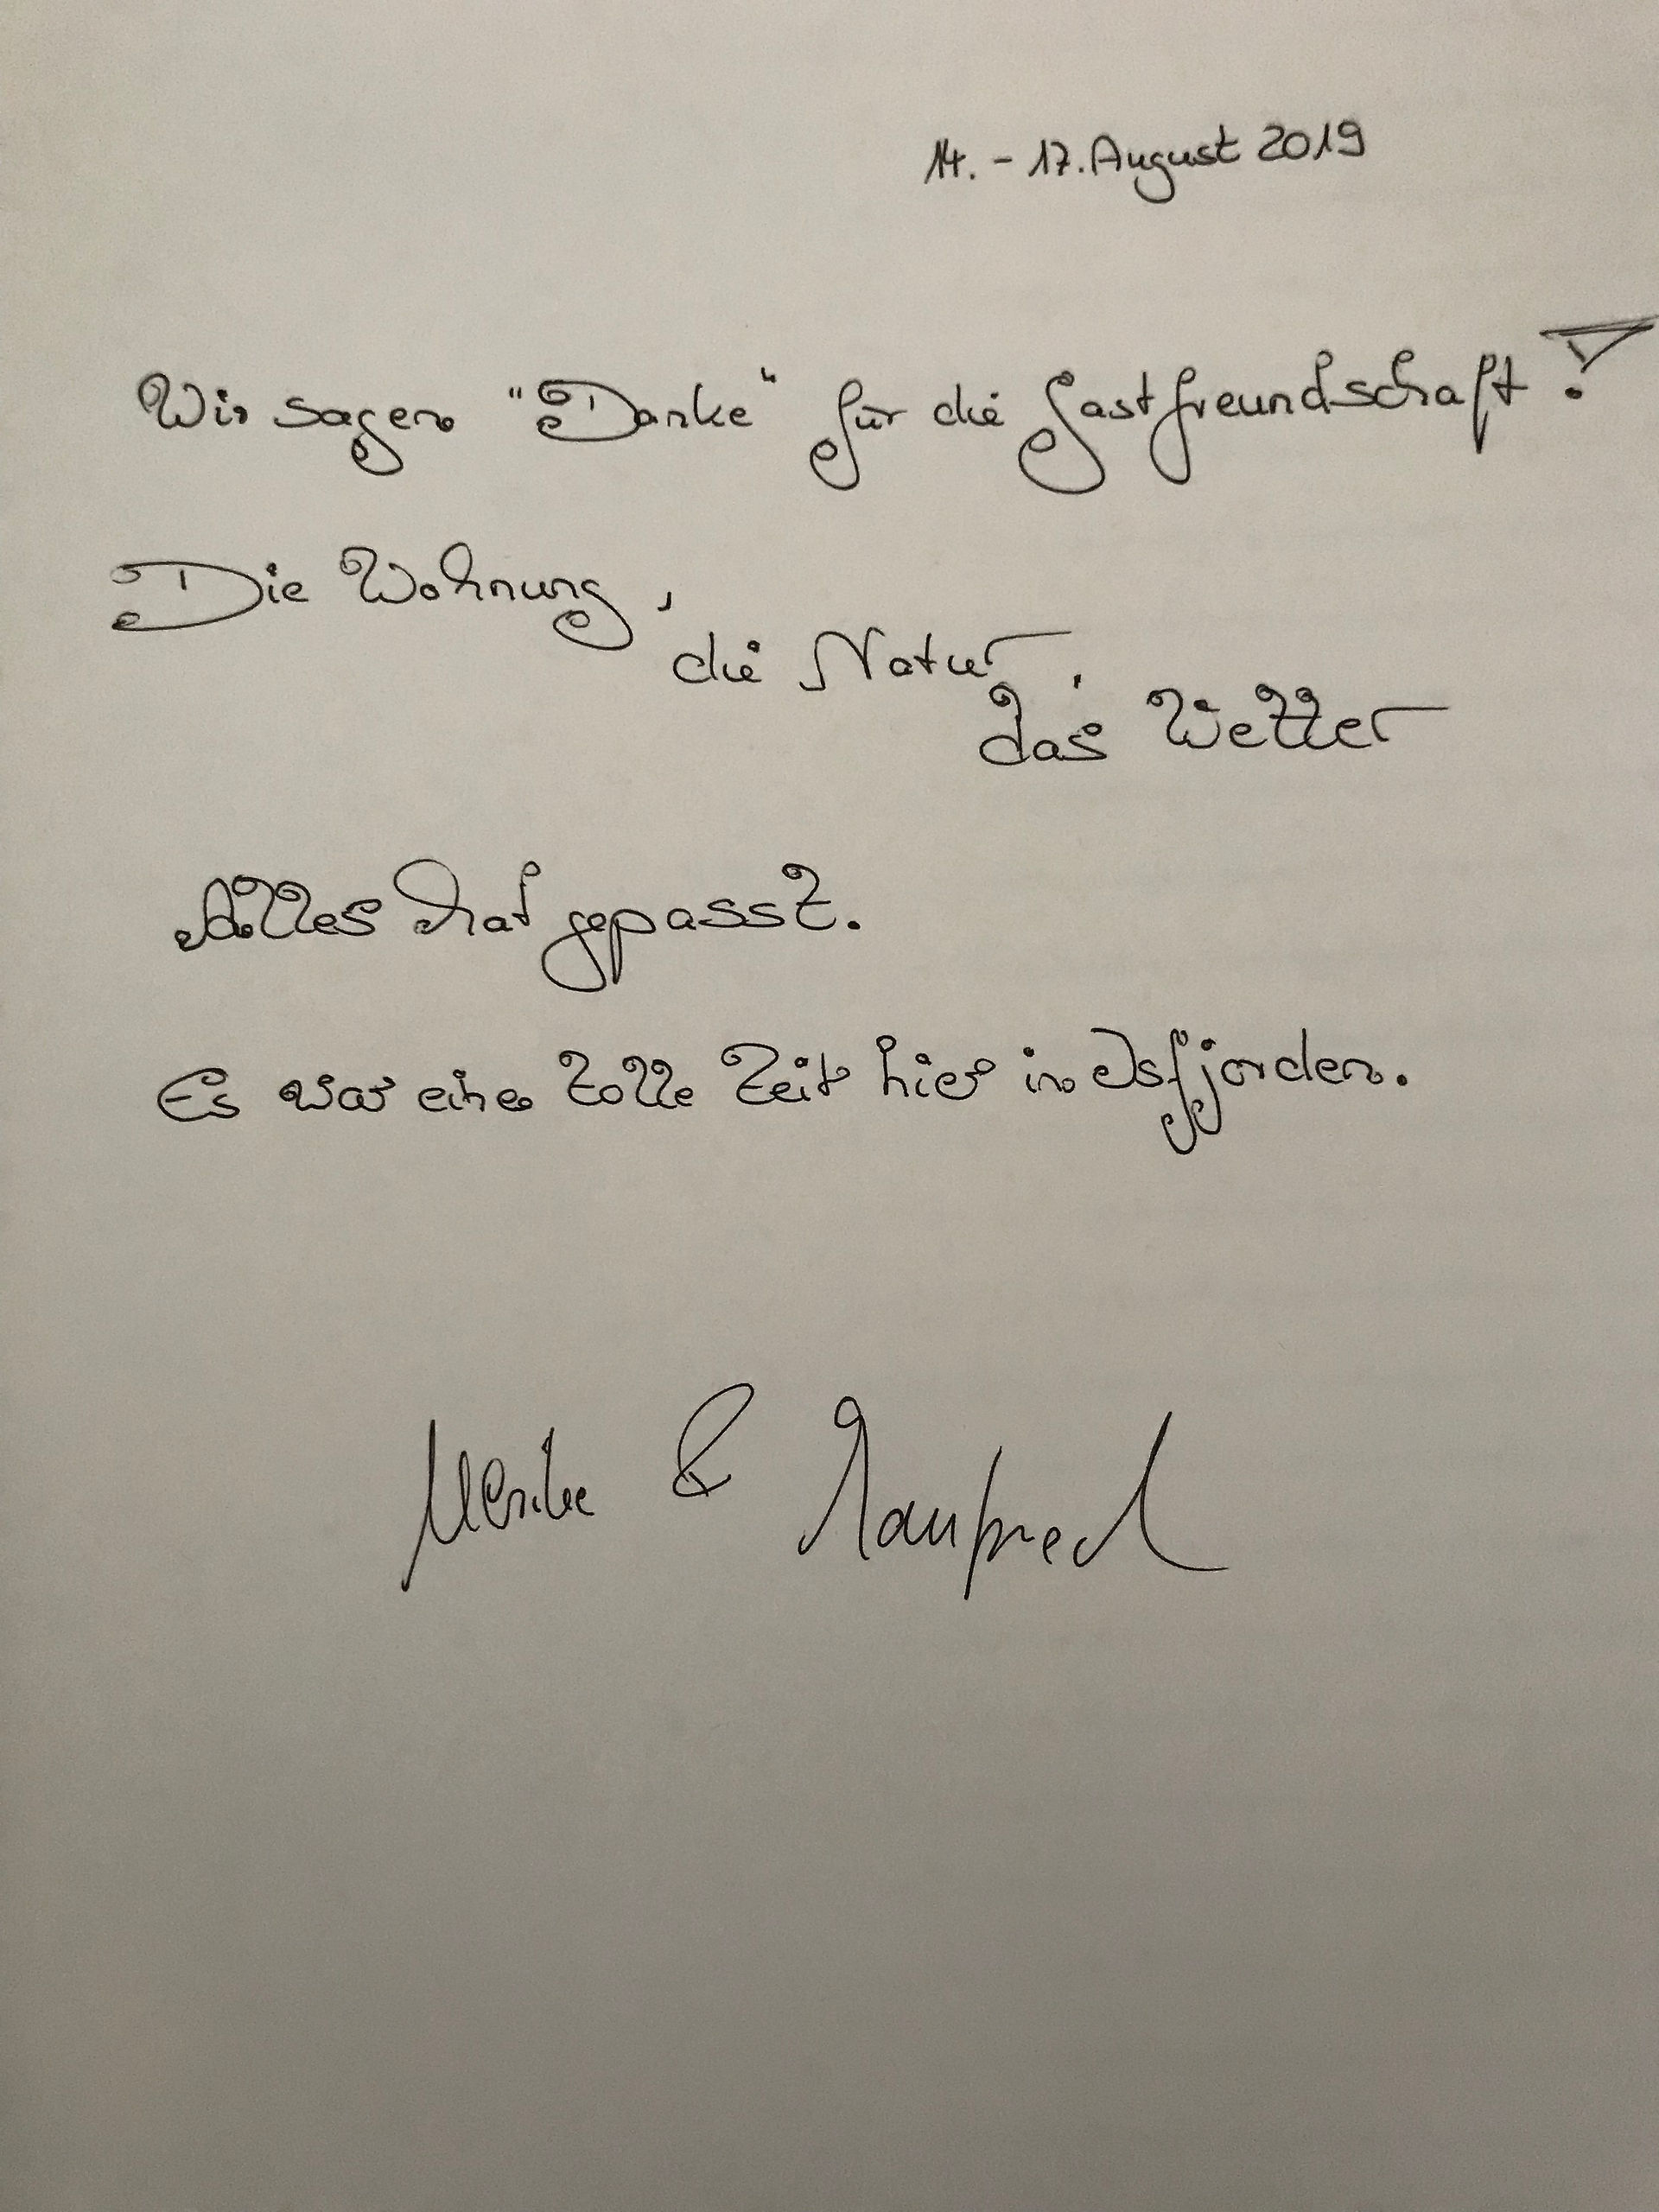 14. - 17. August 2019
Wir sagen "Danke" für die Gastfreundschaft!
Die Wohnung,
die Natur,
das Wetter
Alles hat gepasst.
Es war eine tolle Zeit hier in Isfjorden.
Ulrike & Manfred